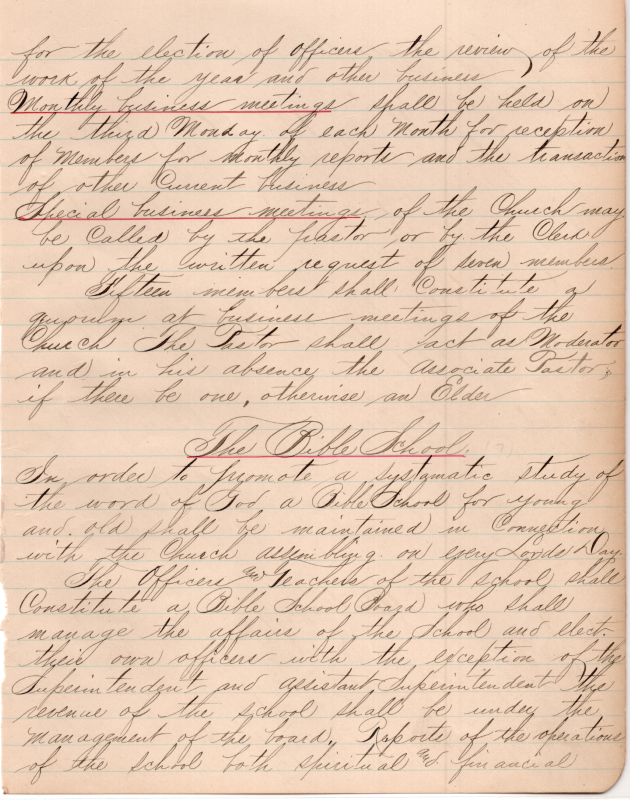 for the election of officers the review of the
work of the year and other business
Monthly business meetings shall be held on
the third Monday of each Month for reception
of Members for monthly reports and the transaction
of other Current business
Special business meetings of the Church may
be Called by the Pastor or by the Clerk
upon the written request of seven members
Fifteen members shall Constitute a
quorum at business meetings of the
Church The Pastor shall act as Moderator
and in his absence the Associate Pastor,
if there be one, otherwise an Elder
The Bible School.
In order to promote a systmatic study of
the word of God a Bible School for young
and old shall be maintained in Connection
with the Church assembling on every Lords Day.
The Officers and Teachers of the school shall
Constitute a Bible School Board who shall
manage the affairs of the School and elect
their own officers with the exception of the
Superintendent and assistant Superintendent The
revenue of the school shall be under the
management of the board, Reports of the operations
of the School both spiritual and financial